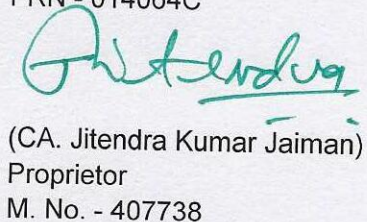 FRN - 014064C
Jitendra
(CA. Jitendra Kumar Jaiman)
Proprietor
M. No. - 407738